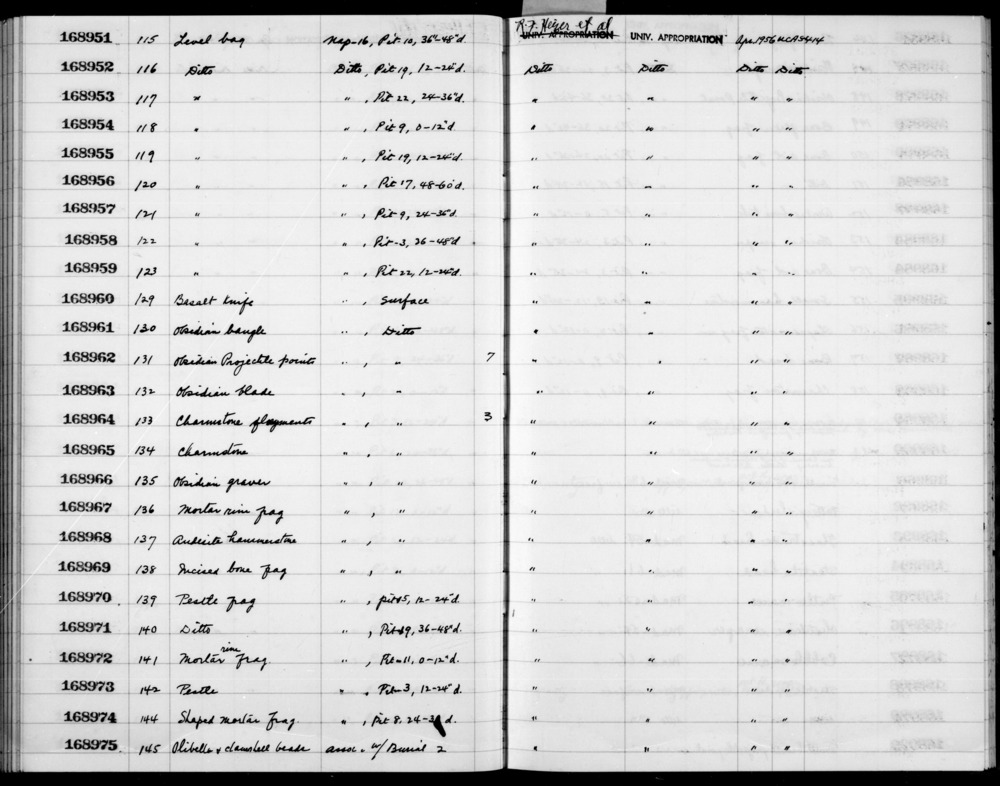 R.F. Heizer et al
168951 115 Level bag Nap-16, Pit 10, 36"-48"d. UNIV. APPROPRIATION UNIV. APPROPRIATION Apr. 1956 UCAS 414
168952 116 Ditto Ditto, Pit 19, 12-24"d. Ditto Ditto Ditto Ditto
168953 117 " ", Pit 22, 24-36"d. " " " "
168954 118 " ", Pit 9, 0-12"d. " " " "
168955 119 " ", Pit 19, 12-24"d. " " " "
168956 120 " ", Pit 17, 48-60"d. " " " "
168957 121 " ", Pit 9, 24-36"d. " " " "
168958 122 " ", Pit-3, 36-48"d. " " " "
168959 123 " ", Pit 22, 12-24"d. " " " "
168960 129 Basalt knife ", Surface " " " "
168961 130 Obsidian bangle ", Ditto " " " "
168962 131 Obsidian Projectile points ", " 7 " " " "
168963 132 Obsidian blade ", " " " " "
168964 133 Charmstone fragments ", " 3 " " " "
168965 134 Charmstone ", " " " " "
168966 135 Obsidian graver ", " " " " "
168967 136 Mortar rim frag ", " " " " "
168968 137 Andesite hammerstone ", " " " " "
168969 138 Incised bone frag ", " " " " "
168970 139 Pestle frag ", pit 5, 12-24"d. " " " "
168971 140 Ditto ", Pit 19, 36-48"d. " " " "
168972 141 Mortar rim frag. ", Pit-11, 0-12"d. " " " "
168973 142 Pestle ", Pit-3, 12-24"d. " " " "
168974 144 Shaped mortar frag. ", Pit 8, 24-3 d. " " " "
168975 145 Olivella & clamshell beads assoc. w/ Burial 2 " " " "